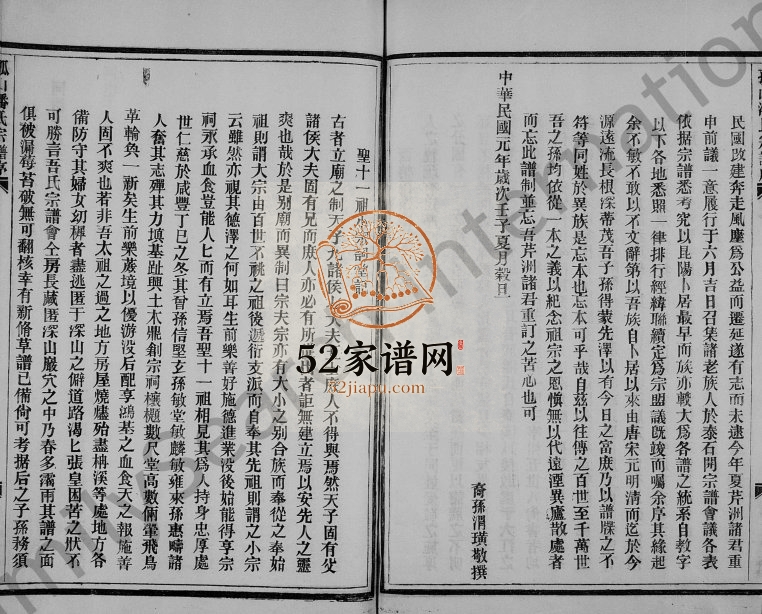 民國改建奔走風塵爲公益而遷延遂有志而未逮今年夏芹洲諸君重
申前議一意履行于六月吉日召集諸老族人於泰石開宗譜會議各表
依据宗譜悉考究以昆陽卜居最早而族亦較大爲各譜之統系自教字
以下各地悉照一律排行經緯聯續定爲宗盟議既竣而囑余序其緣起
余不敏不敢以不文辭第以吾族自卜居以來由唐宋元明清而迄於今
源遠流長根深蒂茂吾子孫得蒙先澤以有今日之富庶乃以譜牒之不
符等同姓於異族是忘本也忘本可乎哉自兹以往傳之百世至千萬世
吾之孫均依從一本之義以紀念祖宗之恩慎無以代遠湮異廬散處者
而忘此譜制並忘吾芹洲諸君重訂之苦心也可
中華民國元年歲次壬子夏月穀旦
裔孫渭璜敬撰
聖十一祖
古者立廟之制天子九諸侯 大夫 庶人不得與焉然天子固有父
諸侯大夫固有兄而庶人亦必有所 者詎無建立焉以安先人之靈
爽也哉於是别廟而異制曰宗夫宗亦有大小之别合族而奉從之奉始
祖則謂大宗由百世不祧之祖後遞衍支派而自奉其先祖則謂之小宗
云雖然亦視其德澤之何如耳生前樂善好施德進業没後始能得享宗
祠承承血食豈能人匕而有立焉吾聖十一祖相見其爲人持身忠厚處
世仁慈於咸豐丁巳之冬其曾孫信堅玄孫敏堂敏麟敏雍來孫惠疇諸
人奮其志殫其力填基趾興土木鼎創宗祠榱桷數尺堂高數倆翬飛鳥
革輪奐一新矣生前樂嚴境以優游没后配享鴻基之血食天之報施善
人固不爽也若非吾太祖之過之地方房屋燒燼殆盡楠溪等處地方各
備防守其婦女幼穉者盡逃匿于深山之僻道路渴匕張皇困苦之狀不
可勝言吾氏宗譜會仝房長藏匿深山巖穴之中乃春多霧雨其譜之面
俱被漏莓苔破無可翻核幸有新脩草譜已備尚可考据后之子孫務須
孤山潘氏宗譜序
52家谱网
52jiapu.com